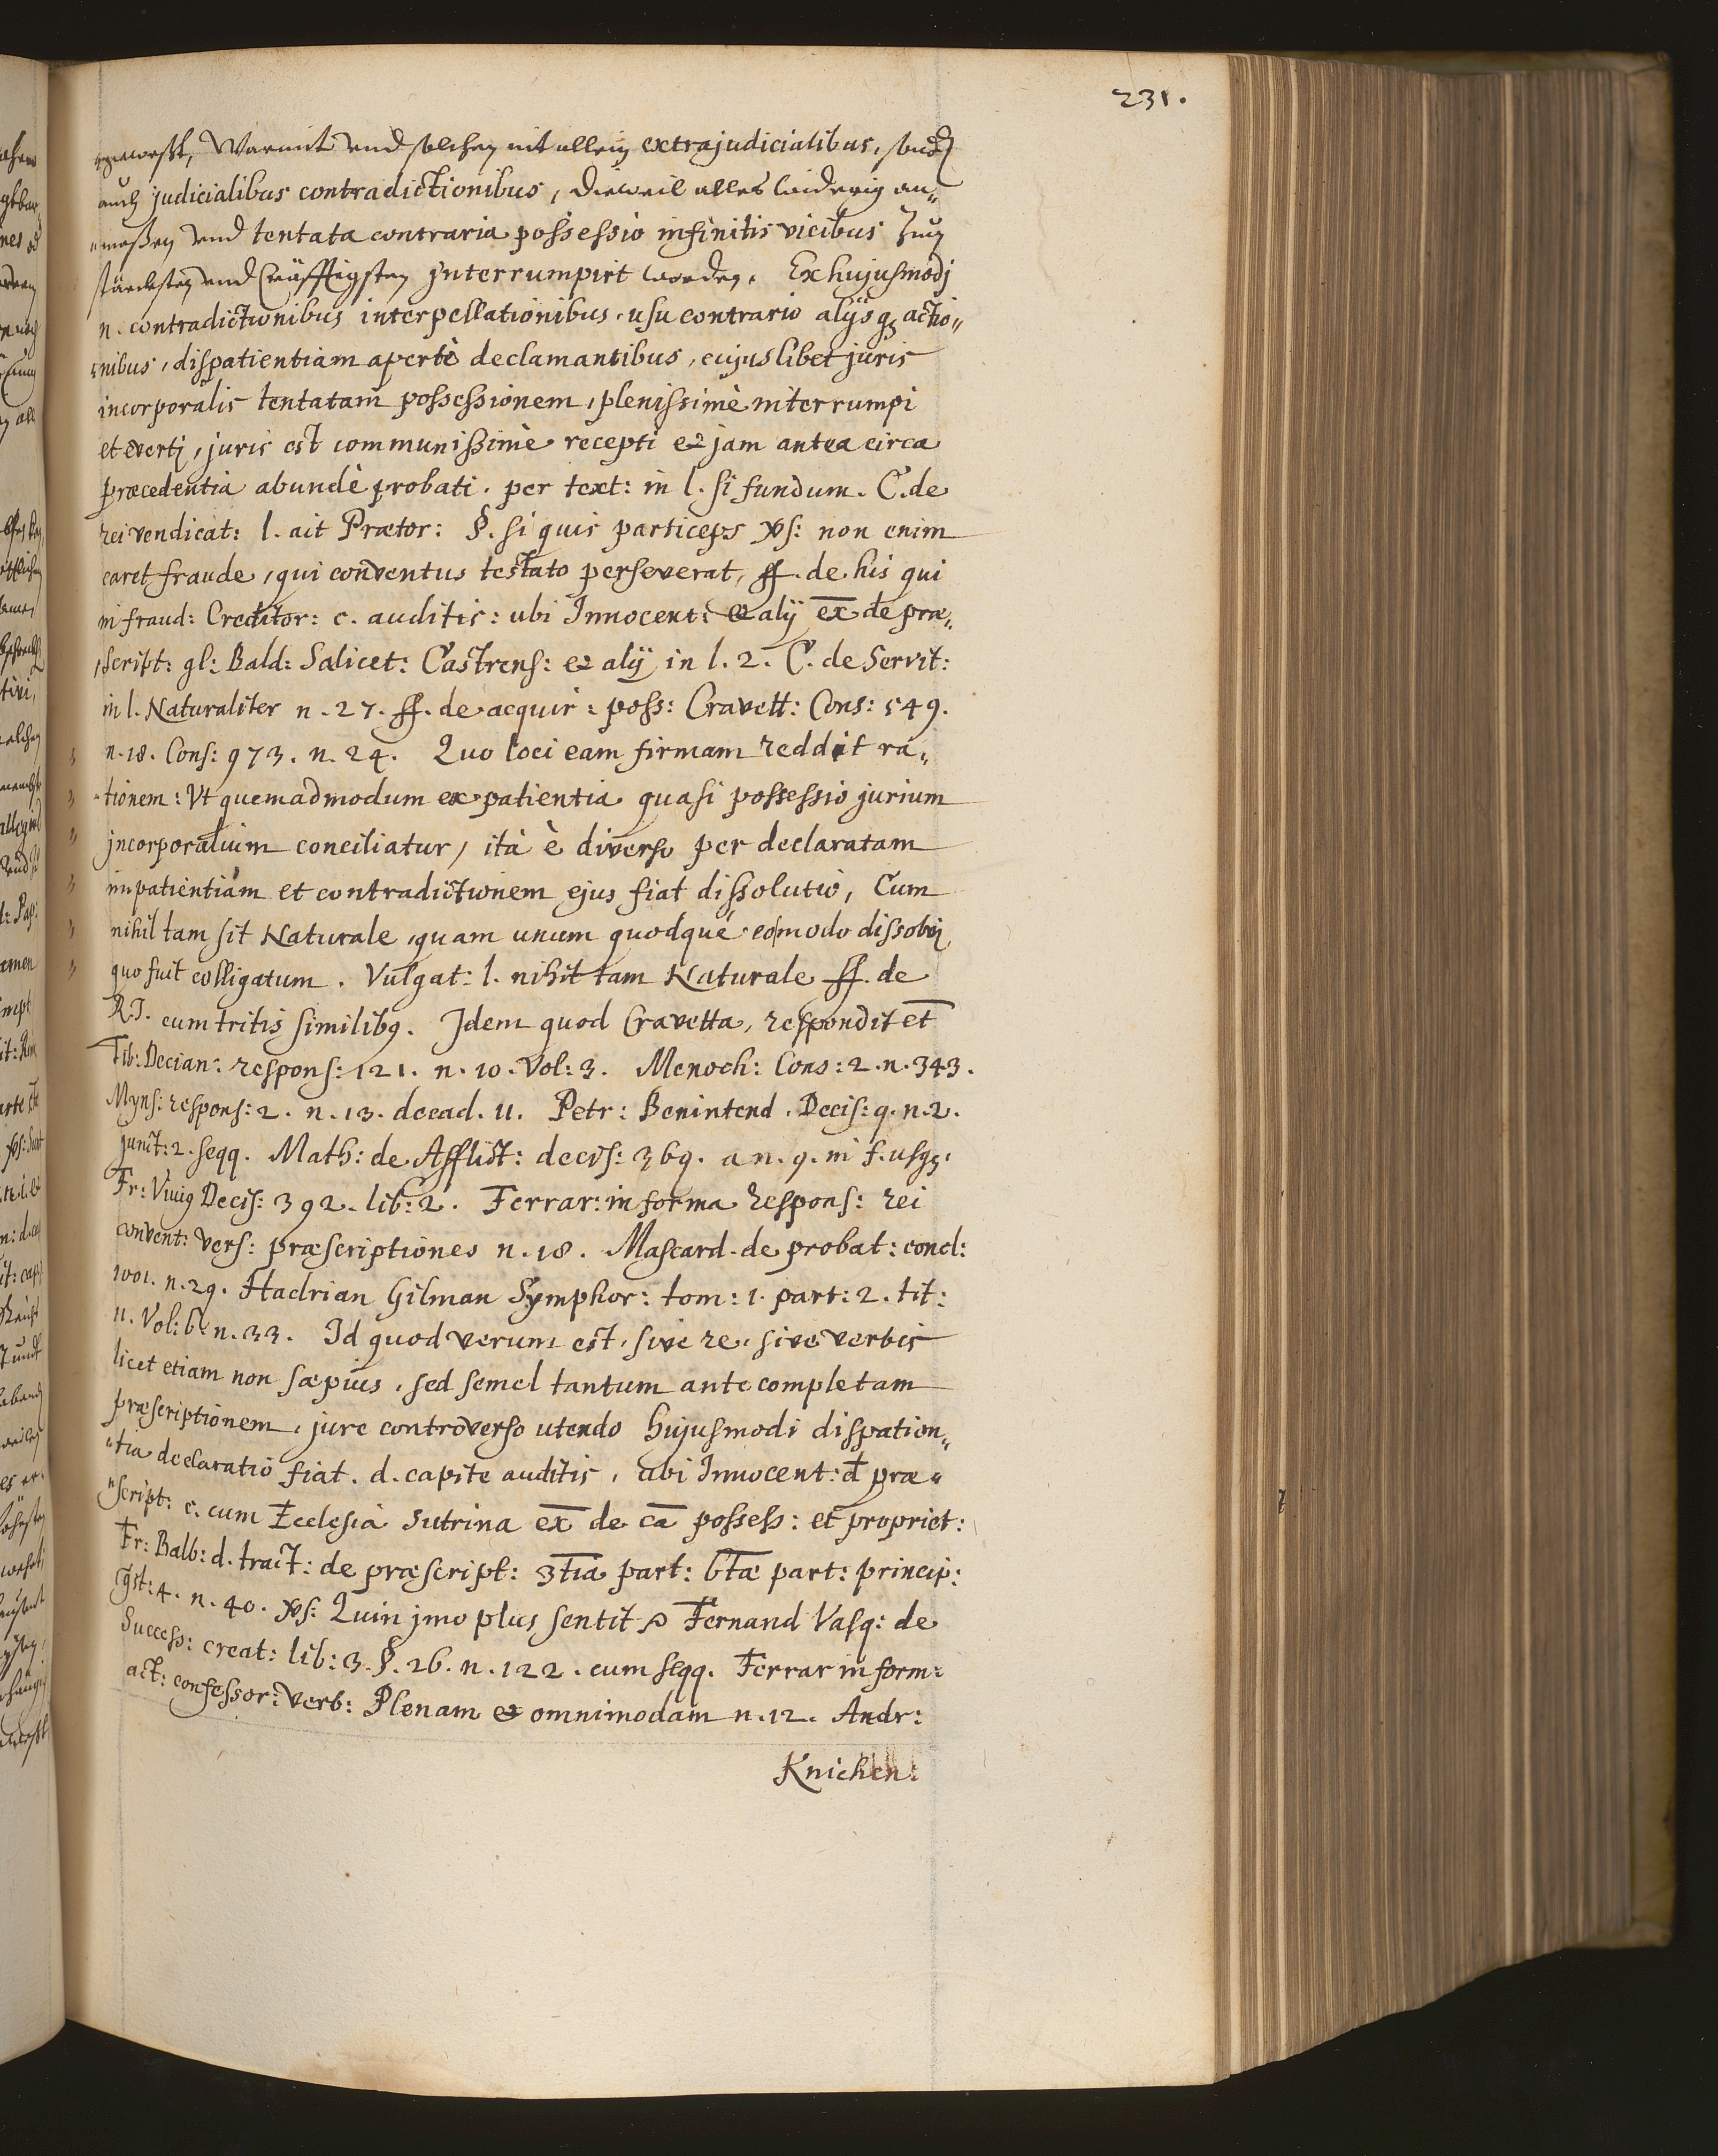 231.
gewest, Warmit und solchen nit allein extrajudicialibus, sondern
auch judicialibus contradictionibus, dieweil alles widerig an„
„maßen und tentata contraria possessio infinitis vicibus zum
stärcksten und kräfftigsten interrumpirt worden. Ex hujusmodj
n. contradictionibus interpellationibus, usu contrario alijsq₃ actio„
„nibus, dispatientiam apertè declamantibus, cujuslibet juris
incorporalis tentatam possessionem, plenissimè interrumpi
et everti, juris est communissimè recepti et jam antea circa
præcedentia abundè probati. per text: in l. si fundum. C. de
rei vendicat: l. ait Prætor: §. si quis particeps vs: non enim
caret fraude, qui conventus testato perseverat, ff. de his qui
in fraud: Creditor: c. auditis: ubi Innocent: et alij ex̄ de præ„
„script: gl: Bald: Salicet: Castrens: et alij in l. 2. C. de Servit:
in l. Naturaliter n. 27. ff. de acquir: poss: Cravett: Cons: 549.
n. 18. Cons: 973. n. 24. Quo loci eam firmam reddit ra„
„tionem: Ut quemadmodum ex patientia quasi possessio jurium
jncorporalium conciliatur, ità è diverso per declaratam
impatientiam et contradictionem ejus fiat dissolutio, Cum
nihil tam sit Naturale, quam unum quodque eo modo dissolvi
quo fuit colligatum. Vulgat: l. nihil tam Naturale ff. de
R. J. cum tritis similibq. Jdem quod Cravetta, respondit et
Tib: Decian: respons: 121. n. 10. Vol: 3. Menoch: Cons: 2. n. 343.
Myns: respons: 2. n. 13. decad. 11. Petr: Benintend. Decis: 9. n. 2.
junct: 2. seqq. Math: de Afflict: decis: 369. a n. 9. in f. usq₃.
Fr: Viuig Decis: 392. lib: 2. Ferrar: in forma respons: rei
convent: vers: præscriptiones n. 18. Mascard. de probat: concl:
1001. n. 29. Hadrian Gilman Symphor: tom: 1. part: 2. tit:
11. Vol: 6. n. 33. Id quod verum est, sive re, sive verbis
licet etiam non sæpius, sed semel tantum ante completam
præscriptionem, jure controverso utendo hujusmodi dispatien„
„tia declaratio fiat. d. capite auditis, ubi Innocent: d præ„
„script: c. cum Ecclesia Sutrina ex̄ de cā possess: et propriet:
Fr: Balb: d. tract: de præscript: 3tia part: 6tæ part: princip:
qst: 4. n. 40. vs: Quin jmo plus sentit Fernand Vasq: de
Success: creat: lib: 3. §. 26. n. 122. cum seqq. Ferrar in form:
act: confessor: Verb: Plenam et omnimodam n. 12. Andr:
Knichen: